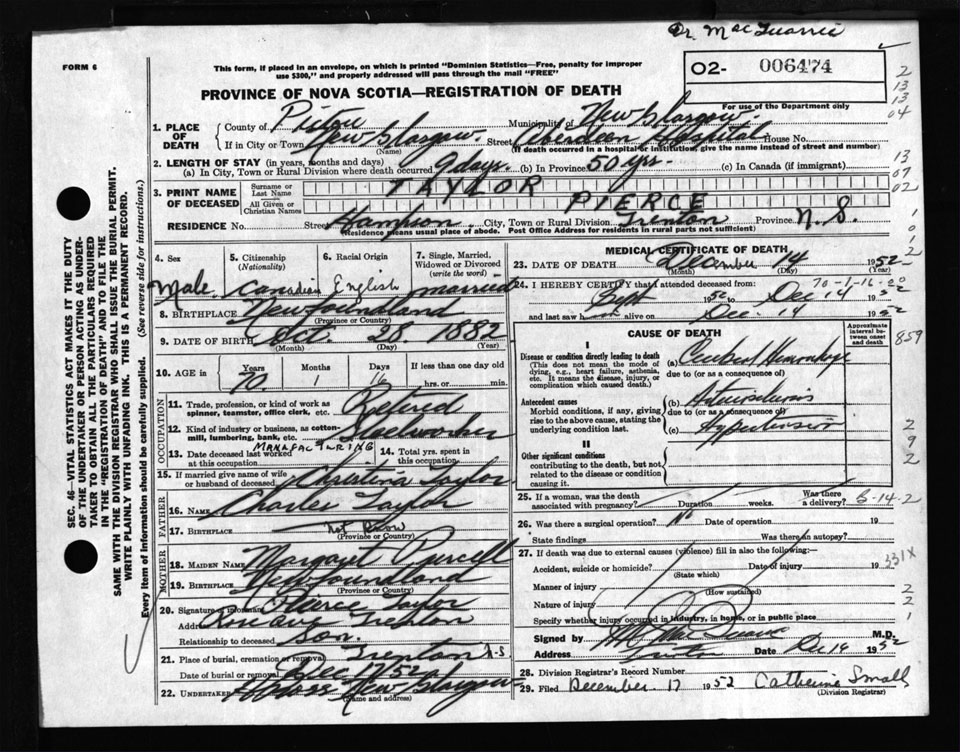 Dr. MacQuarrie
FORM 6
This form, if placed in an envelope, on which is printed "Dominion Statistics—Free, penalty for improper
use $300," and properly addressed will pass through the mail "FREE"
02- 006474
PROVINCE OF NOVA SCOTIA—REGISTRATION OF DEATH
For use of the Department only
1. PLACE OF DEATH
County of Pictou Municipality of New Glasgow
If in City or Town New Glasgow (Name) Street Aberdeen Hospital House No.
(If death occurred in a hospital or institution, give the name instead of street and number)
2. LENGTH OF STAY (in years, months and days)
(a) In City, Town or Rural Division where death occurred 9 days. (b) In Province 50 yrs. (c) In Canada (if immigrant)
3. PRINT NAME OF DECEASED
Surname or Last Name TAYLOR
All Given or Christian Names PIERCE
RESIDENCE No. Street Hampson City, Town or Rural Division Trenton Province N.S.
(Residence means usual place of abode. Post Office Address for residents in rural parts not sufficient)
4. Sex
Male
5. Citizenship (Nationality)
Canadian
6. Racial Origin
English
7. Single, Married, Widowed or Divorced (write the word)
married
8. BIRTHPLACE Newfoundland
(Province or Country)
9. DATE OF BIRTH Oct. 28 1882
(Month) (Day) (Year)
10. AGE in Years 70 Months 1 Days 16 If less than one day old hrs. or min.
OCCUPATION
11. Trade, profession, or kind of work as spinner, teamster, office clerk, etc. Retired
12. Kind of industry or business, as cotton-mill, lumbering, bank, etc. Steelworker
MANAFACTURING
13. Date deceased last worked at this occupation
14. Total yrs. spent in this occupation
15. If married give name of wife or husband of deceased Christina Taylor
FATHER
16. Name Charles Taylor
17. Birthplace Not Know
(Province or Country)
MOTHER
18. Maiden Name Margaret Purcell
19. Birthplace Newfoundland
(Province or Country)
20. Signature of informant Pierce Taylor
Address Trenton
Relationship to deceased Son.
21. Place of burial, cremation or removal Trenton N-S
Date of burial or removal Dec 17/52
22. Undertaker New Glasgow
(Name and address)
MEDICAL CERTIFICATE OF DEATH
23. DATE OF DEATH December 14 1952
(Month) (Day) (Year)
70-1-16-20
24. I HEREBY CERTIFY that I attended deceased from:
Sept 1952 to Dec 14 1952
and last saw h alive on Dec. 14 1952
CAUSE OF DEATH
Approximate interval between onset and death
I
Disease or condition directly leading to death
(This does not mean the mode of dying, e.g., heart failure, asthenia, etc. It means the disease, injury, or complication which caused death.)
(a) Cerebral Hemorrhage
due to (or as a consequence of)
Antecedent causes
Morbid conditions, if any, giving rise to the above cause, stating the underlying condition last.
(b) Arteriosclerosis
due to (or as a consequence of)
(c) Hypertension
II
Other significant conditions
contributing to the death, but not related to the disease or condition causing it.
25. If a woman, was the death associated with pregnancy? Duration weeks. Was there a delivery?
6-14-2
26. Was there a surgical operation? No Date of operation 19
State findings Was there an autopsy?
27. If death was due to external causes (violence) fill in also the following:—
Accident, suicide or homicide? Date of injury 19
(State which)
Manner of injury
(How sustained)
Nature of injury
Specify whether injury occurred in industry, in home, or in public place
Signed by M.D.
Address Trenton Date Dec 14 1952
28. Division Registrar's Record Number
29. Filed December. 17 1952 Catherine Small
(Division Registrar)
SEC. 46—VITAL STATISTICS ACT MAKES IT THE DUTY
OF THE UNDERTAKER OR PERSON ACTING AS UNDER-
TAKER TO OBTAIN ALL THE PARTICULARS REQUIRED
IN THE "REGISTRATION OF DEATH" AND TO FILE THE
SAME WITH THE DIVISION REGISTRAR WHO SHALL ISSUE THE BURIAL PERMIT.
WRITE PLAINLY WITH UNFADING INK. THIS IS A PERMANENT RECORD.
Every item of information should be carefully supplied. (See reverse side for instructions.)
2
13
13
04
13
07
02
1
0
1
2
859
2
9
2
331X
2
2
1